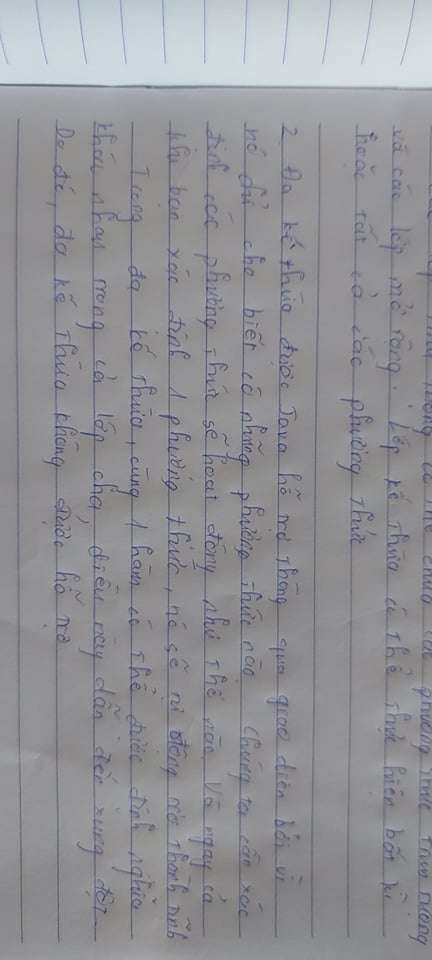 các lớp trừu tượng có thể chứa các phương thức trừu tượng
và các lớp mở rộng. Lớp kế thừa có thể thực hiện bất kì
hoặc tất cả các phương thức
2. Đa kế thừa được Java hỗ trợ thông qua giao diện bởi vì
nó chỉ cho biết có những phương thức nào. Chúng ta cần xác
định các phương thức sẽ hoạt động như thế nào. Và ngay cả
khi bạn xác định 1 phương thức, nó sẽ tự động trở thành tĩnh
Trong đa kế thừa, cùng 1 hàm có thể được định nghĩa
khác nhau trong cả lớp cha, điều này dẫn đến xung đột.
Do đó, đa kế thừa không được hỗ trợ